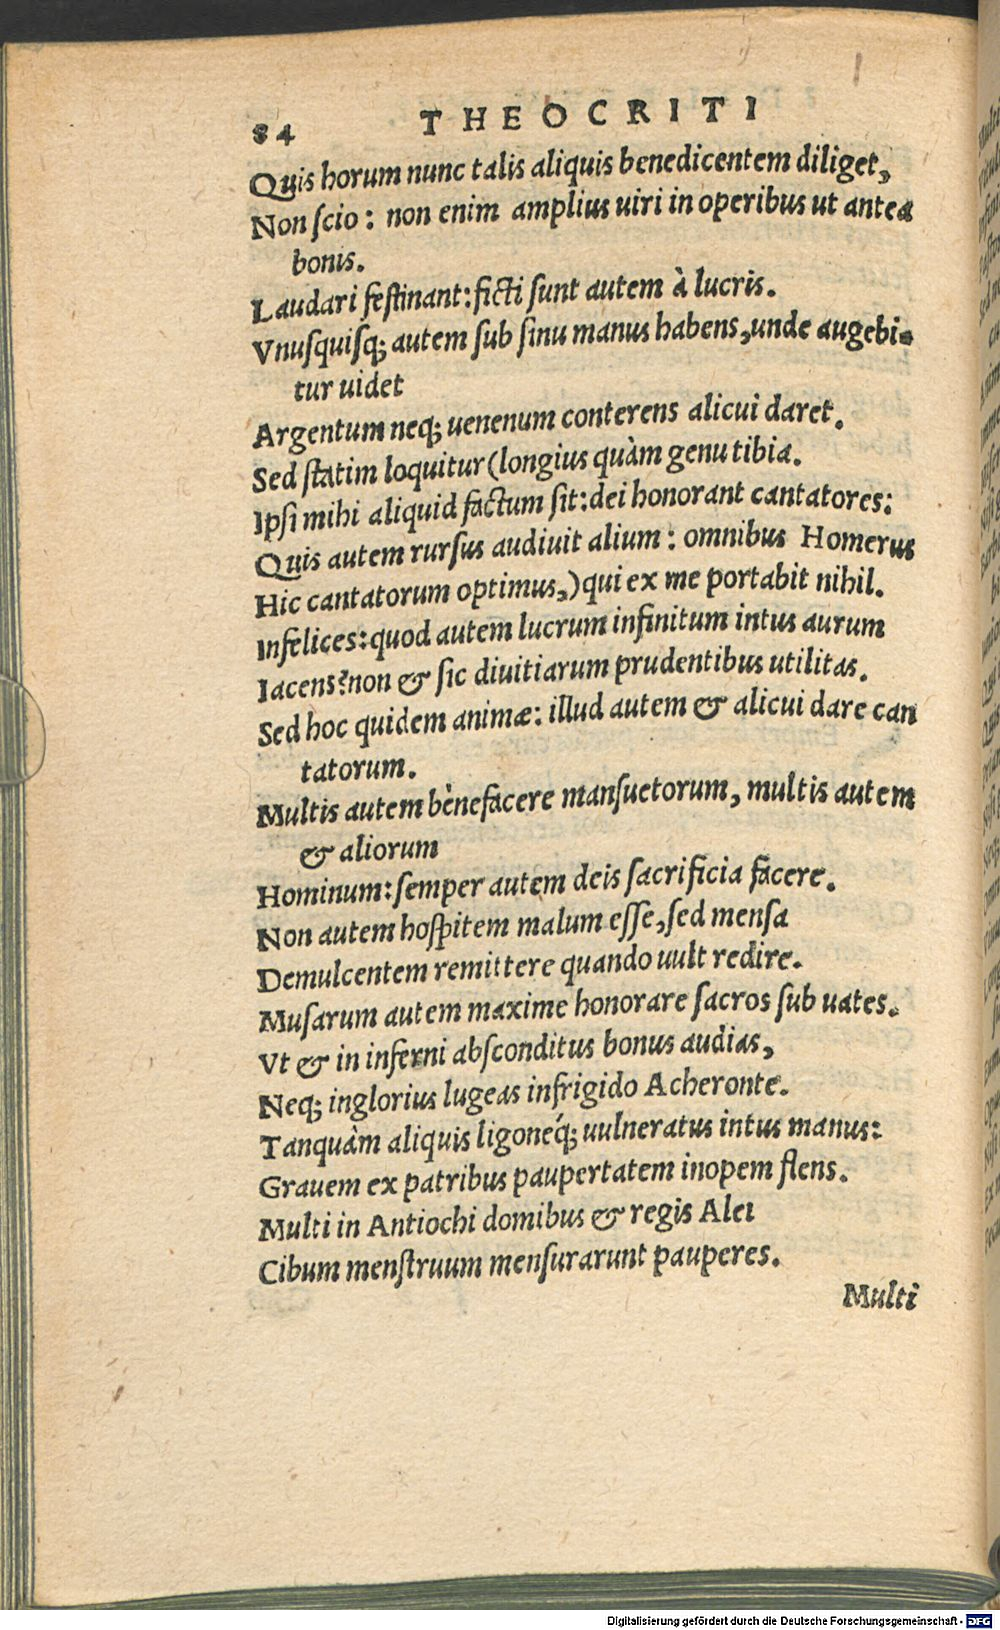 84 THEOCRITI
Quis horum nunc talis aliquis benedicentem diliget,
Non ſcio: non enim amplius uiri in operibus ut antea
bonis.
Laudari feſtinant: ficti ſunt autem à lucris.
Vnuſquiſq; autem ſub ſinu manus habens, unde augebi-
tur uidet
Argentum neq; uenenum conterens alicui daret.
Sed ſtatim loquitur (longius quàm genu tibia.
Ipſi mihi aliquid factum ſit: dei honorant cantatores:
Quis autem rurſus audiuit alium: omnibus Homerus
Hic cantatorum optimus,) qui ex me portabit nihil.
Infelices: quod autem lucrum infinitum intus aurum
Iacens? non & ſic diuitiarum prudentibus utilitas.
Sed hoc quidem animæ: illud autem & alicui dare can
tatorum.
Multis autem bènefacere manſuetorum, multis autem
& aliorum
Hominum: ſemper autem deis ſacrificia facere.
Non autem hoſpitem malum eſſe, ſed menſa
Demulcentem remittere quando uult redire.
Muſarum autem maxime honorare ſacros ſub uates.
Vt & in inferni abſconditus bonus audias,
Neq; inglorius lugeas in frigido Acheronte.
Tanquàm aliquis ligoneq́; uulneratus intus manus:
Grauem ex patribus paupertatem inopem flens.
Multi in Antiochi domibus & regis Alei
Cibum menſtruum menſurarunt pauperes.
Multi
Digitalisierung gefördert durch die Deutsche Forschungsgemeinschaft - DFG